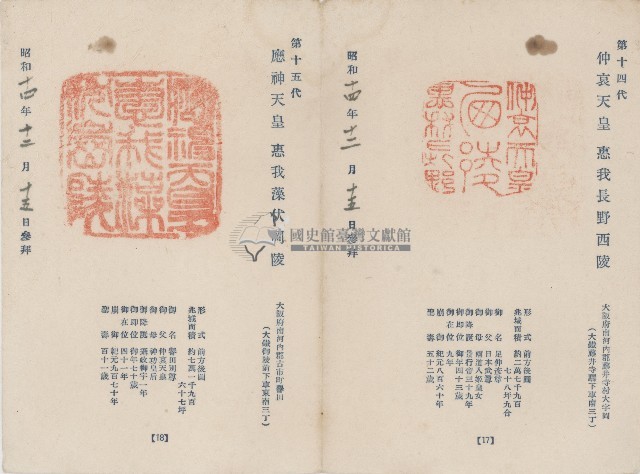 第十四代
仲哀天皇 惠我長野西陵
昭和十四年十二月十五日參拜
仲哀天皇
惠我長野
西陵
大阪府南河内郡藤井寺村大字岡
(大鐵藤井寺驛下車南三丁)
形式 前方後圓
兆域面積 約二萬七千九百
七十八坪九合
御名 足仲彦尊
御父 日本武尊
御母 兩道入姫皇女
御即位 御年四十三歳
御在位 九年
崩御 紀元八百六十年
聖壽 五十二歳
【17】
第十五代
應神天皇 惠我藻伏岡陵
昭和十四年十二月十五日參拜
應神天皇
惠我藻
伏岡陵
大阪府南河内郡古市町譽田
(大鐵御陵前下車東南三丁)
形式 前方後圓
兆域面積 約七萬一千九百
六十七坪
御名 譽田別尊
御父 仲哀天皇
御母 神功皇后
御即位 御年七十歳
御在位 四十一年
崩御 紀元九百七十年
聖壽 百十一歳
【18】
國史館臺灣文獻館
TAIWAN HISTORICA